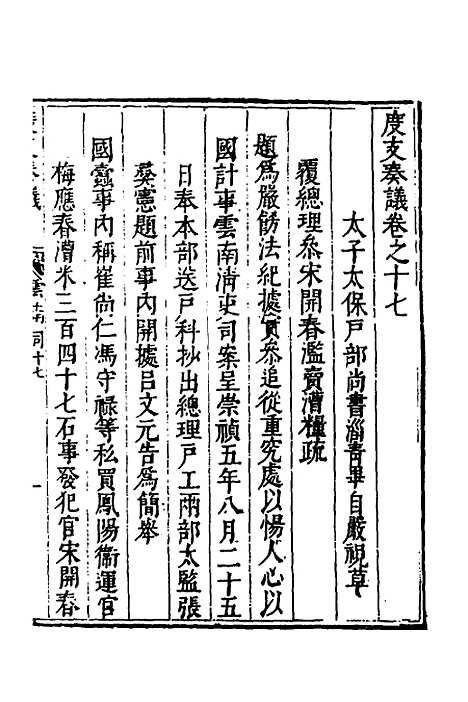 度支奏議卷之十七
太子太保戶部尚書淄青畢自嚴視草
覆總理叅宋開春濫賣漕糧疏
題爲嚴飭法紀據實叅追從重究處以惕人心以
國計事雲南清吏司案呈崇禎五年八月二十五
日奉本部送戶科抄出總理戶工兩部太監張
彝憲題前事內開據呂文元告爲簡舉
國蠹事內稱崔尚仁馮守祿等私買鳳陽衞運官
梅應春漕米三百四十七石事發犯官宋開春
度支奏議
雲南司十七
一